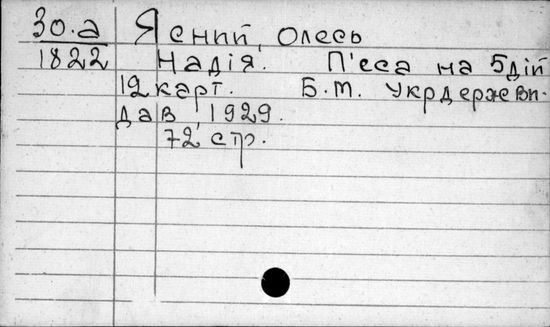 30.а Ясний, Олесь
1822 Надія. П'єса на 5 дій
12 карт. Б.м. Укрдержвп-
дав, 1929.
72 стр.